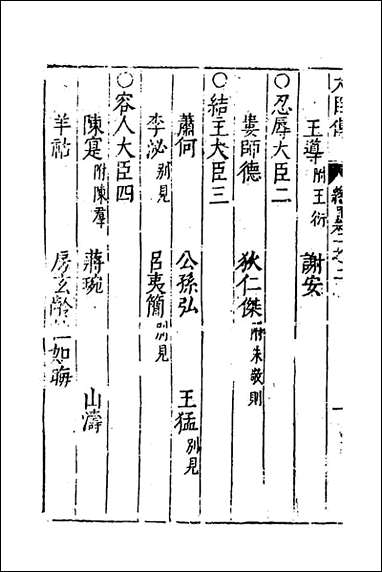 王導附王衍 謝安
〇忍辱大臣二
婁師德 狄仁傑附朱敬則
〇結主大臣三
蕭何 公孫弘 王猛別見
李泌別見 呂夷簡別見
〇容人大臣四
陳寔附陳羣 蔣琬 山濤
羊祜 房玄齡 如晦